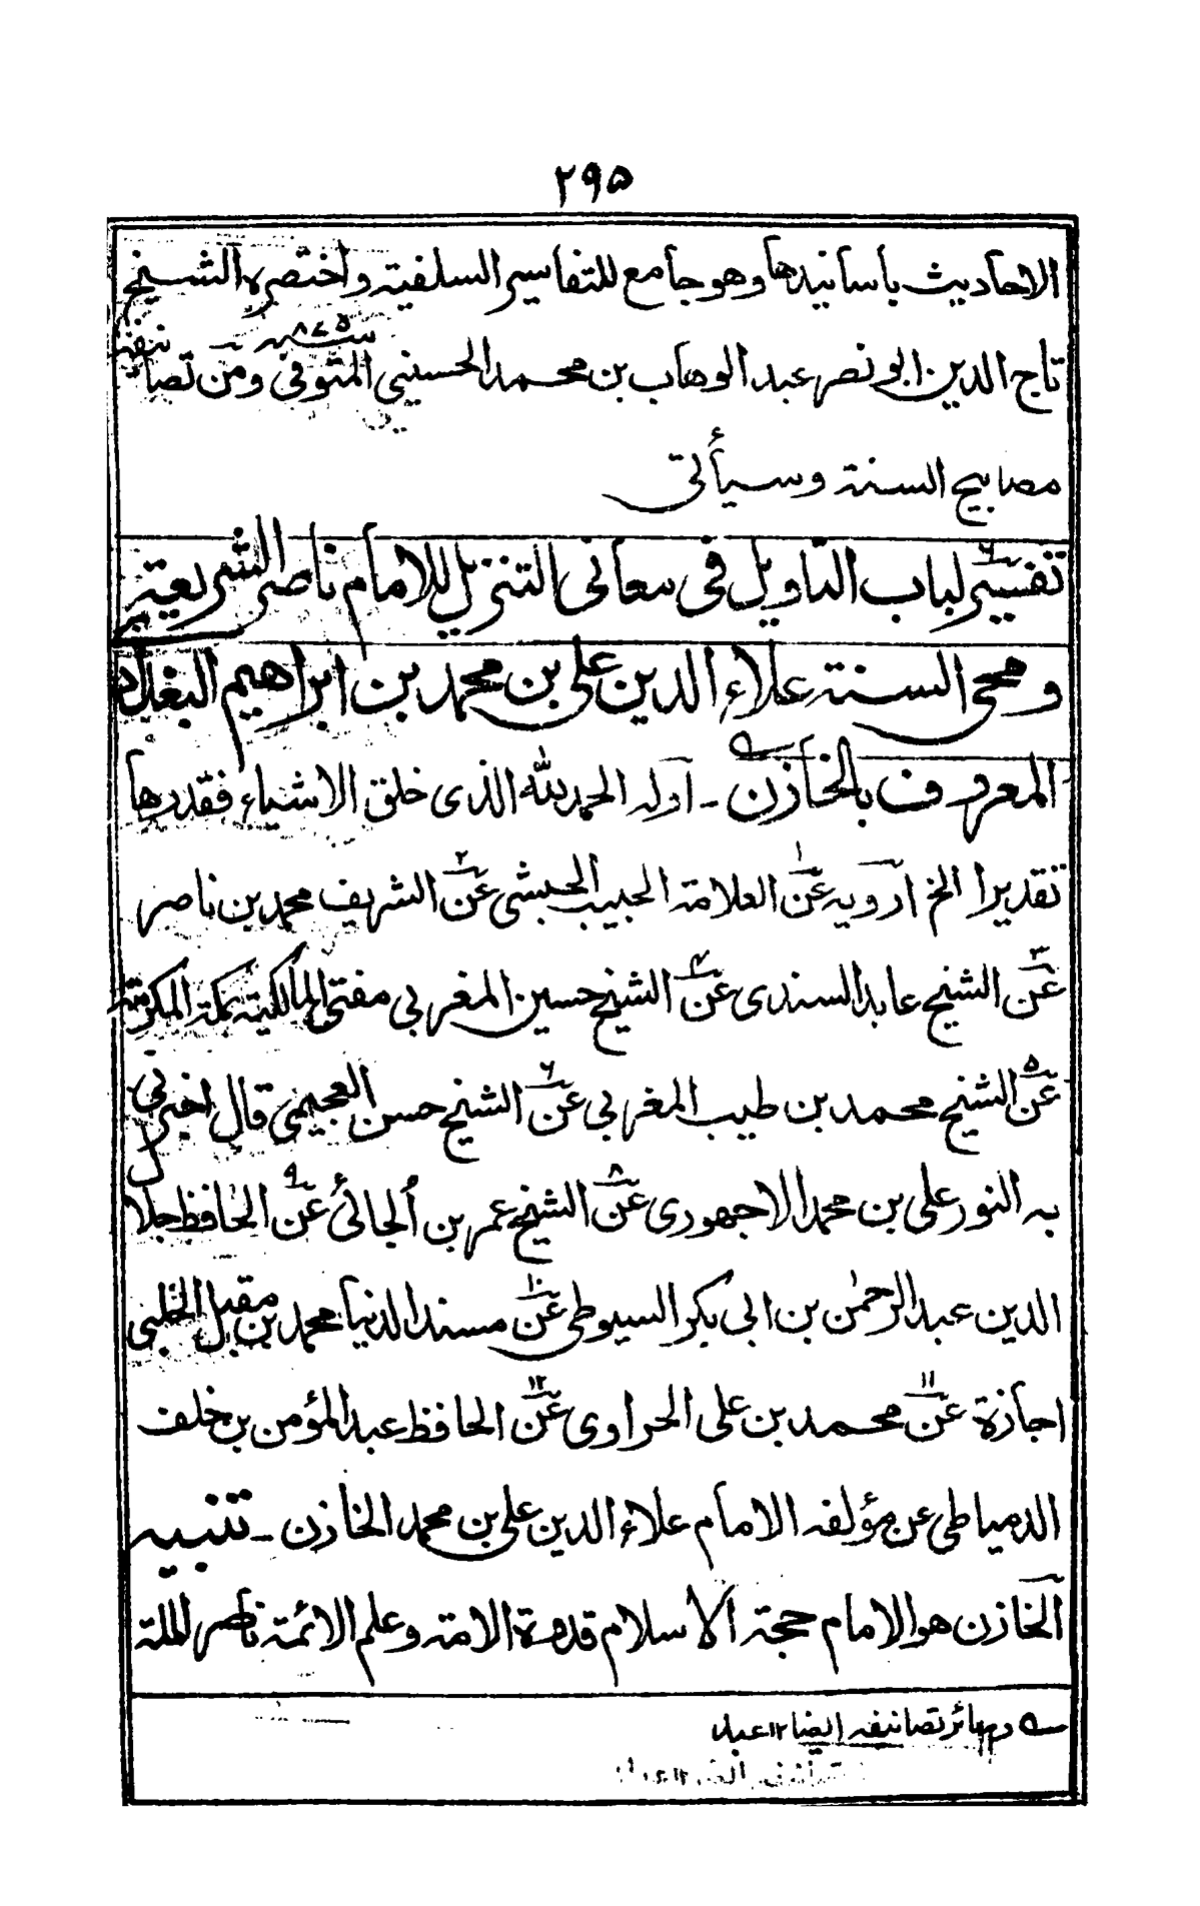 ٢٩٥
الاحاديث بأسانيدها وهو جامع للتفاسير السلفية واختصره الشيخ
تاج الدين ابو نصر عبد الوهاب بن محمد الحسيني المتوفى سنة ٨٧٥ ومن تصانيفه
مصابيح السنة وسيأتي
تفسير لباب التاويل في معاني التنزيل للامام ناصر الشريعة
ومحى السنة علاء الدين على بن محمد بن ابراهيم البغدادي
المعروف بالخازن ـ اوله الحمد لله الذى خلق الاشياء فقدرها
تقديرا الخ ارويه عن١ العلامة الحبيب الحبشى عن٢ الشريف محمد بن ناصر
عن٣ الشيخ عابد السندى عن٤ الشيخ حسين المغربي مفتى المالكية بمكة المكرمة
عن٥ الشيخ محمد بن طيب المغربي عن٦ الشيخ حسن العجيمي قال اخبرني
به النور على بن محمد الاجهورى عن٨ الشيخ عمر بن ألجائ عن٩ الحافظ جلال
الدين عبد الرحمن بن ابى بكر السيوطى عن١٠ مسند الدنيا محمد بن مقبل الحلبي
اجازة عن١١ محمد بن على الحراوى عن١٢ الحافظ عبد المؤمن بن خلف
الدمياطى عن مؤلفه الامام علاء الدين على بن محمد الخازن ـ تنبيه
الخازن هو الامام حجة الاسلام قدوة الامة وعلم الائمة ناصر الملة
وبسائر تصانيفه ايضا ١٢ عبد